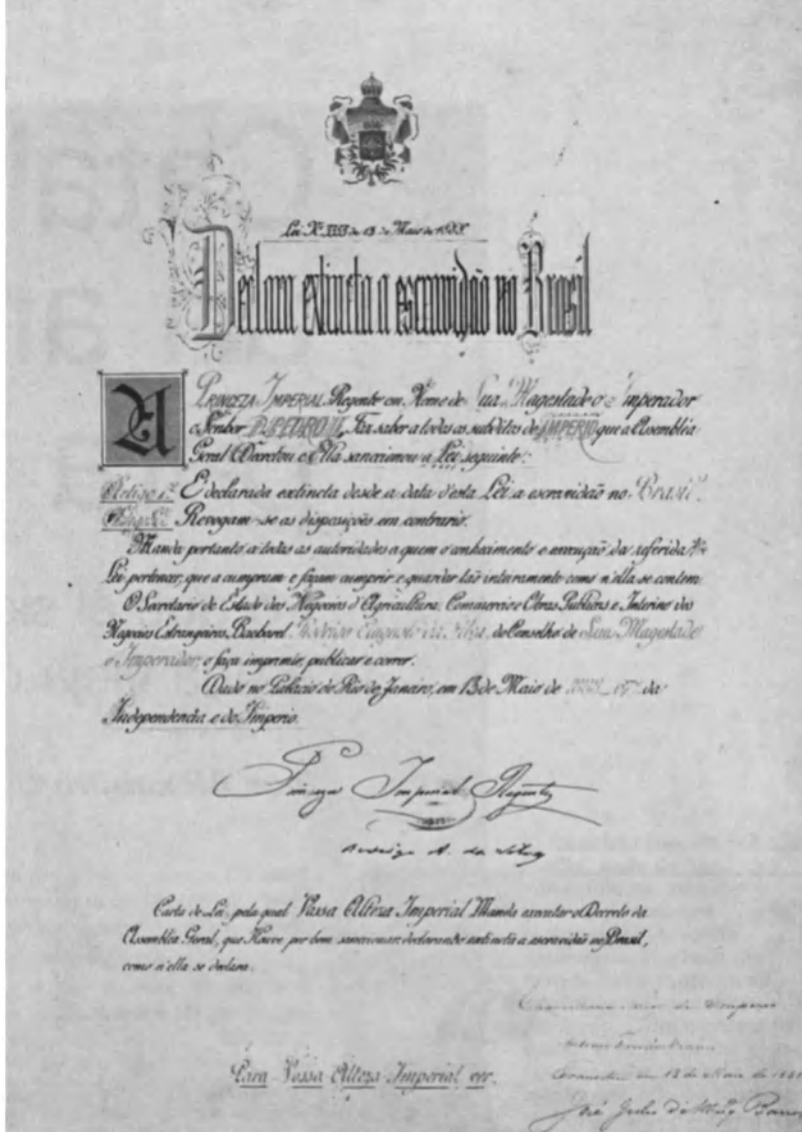 Lei Nº 3353 de 13 de Maio de 1888
Declara extincta a escravidão no Brasil
A PRINCEZA IMPERIAL Regente em Nome de Sua Magestade o Imperador
o Senhor D. PEDRO II, Faz saber a todos os subditos do IMPERIO que a Assemblea
Geral Decretou e Ella sanccionou a Lei seguinte:
Artigo 1º É declarada extincta desde a data d'esta Lei a escravidão no Brasil.
Artigo 2º Revogam-se as disposições em contrario.
Manda portanto a todas as autoridades a quem o conhecimento e execução da referida
Lei pertencer, que a cumpram e façam cumprir e guardar tão inteiramente como n'ella se contem.
O Secretario de Estado dos Negocios d'Agricultura, Commercio e Obras Publicas e Interino dos
Negocios Estrangeiros, Bacharel Rodrigo Augusto da Silva, do Conselho de Sua Magestade
o Imperador, o faça imprimir, publicar e correr.
Dado no Palacio do Rio de Janeiro, em 13 de Maio de 1888, 67º da
Independencia e do Imperio.
Princeza Imperial Regente
Rodrigo A. da Silva
Carta de Lei, pela qual Vossa Alteza Imperial Manda executar o Decreto da
Assemblea Geral, que Houve por bem sanccionar declarando extincta a escravidão no Brasil,
como n'ella se declara.
Chancellaria-mór do Imperio
Para Vossa Alteza Imperial ver.
em 13 de Maio de 1888
José Julio de Barros